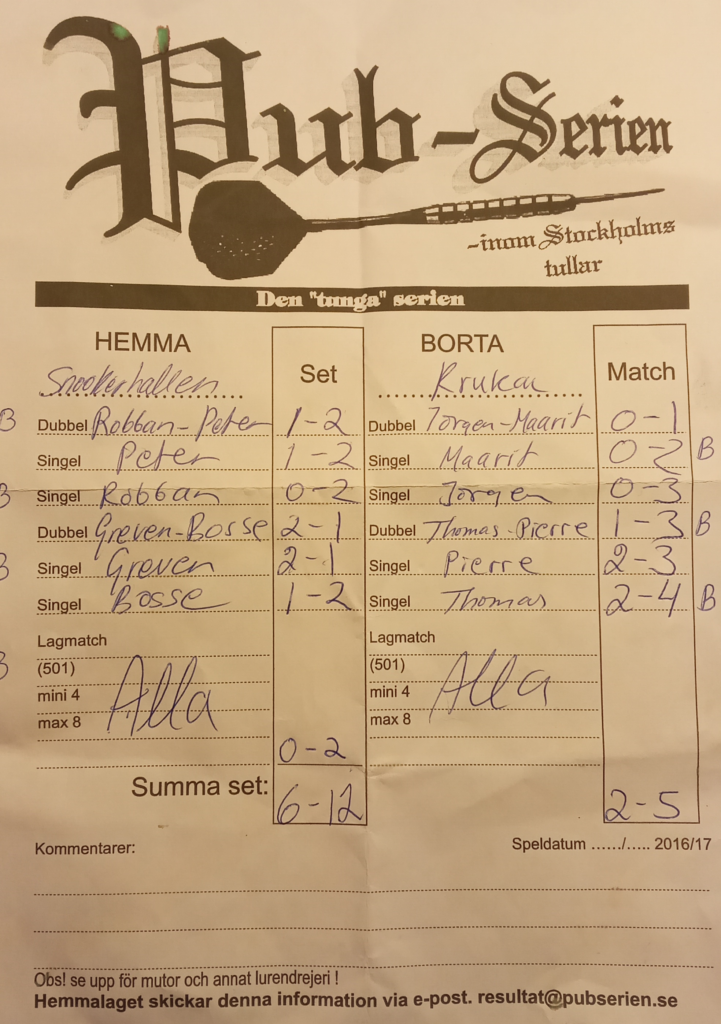 Pub-Serien
-inom Stockholms
tullar
Den "tunga" serien
HEMMA Set BORTA Match
Snookerhallen Krukan
B Dubbel Robban-Peter 1-2 Dubbel Jörgen-Maarit 0-1
Singel Peter 1-2 Singel Maarit 0-2 B
B Singel Robban 0-2 Singel Jörgen 0-3
Dubbel Greven-Bosse 2-1 Dubbel Thomas-Pierre 1-3 B
B Singel Greven 2-1 Singel Pierre 2-3
Singel Bosse 1-2 Singel Thomas 2-4 B
Lagmatch Lagmatch
B (501) (501)
mini 4 Alla mini 4 Alla
max 8 max 8
0-2
Summa set: 6-12 2-5
Kommentarer: Speldatum ....../..... 2016/17
Obs! se upp för mutor och annat lurendrejeri !
Hemmalaget skickar denna information via e-post. resultat@pubserien.se